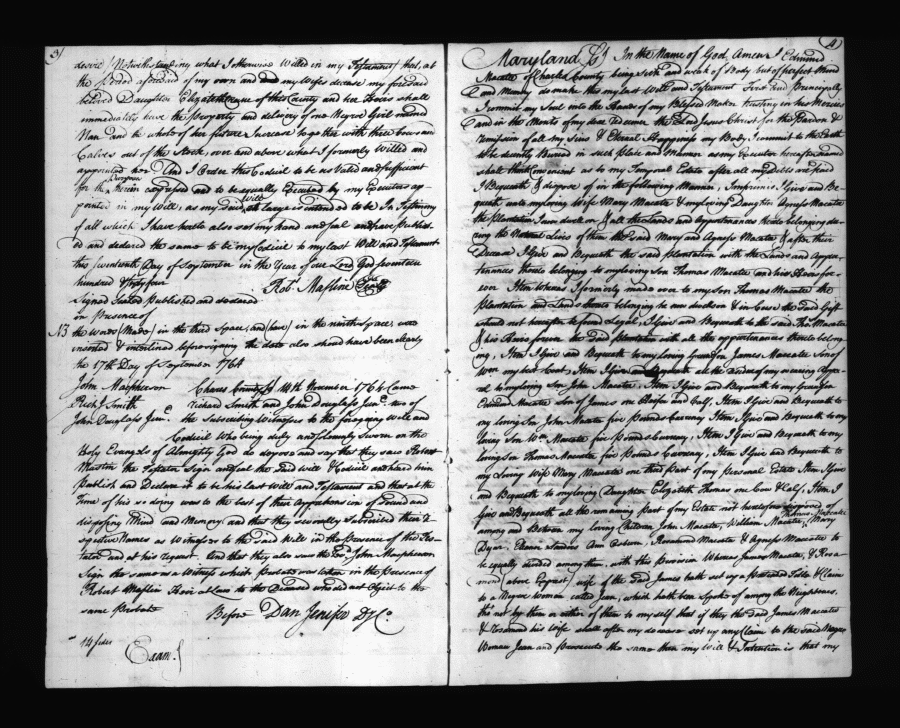 3
desire Notwithstanding what I otherwise Willed in my Testament that, at
the Period aforesaid of my own and and my Wifes decease my foresaid
beloved Daughter Elizabeth of this County and her Heirs shall
immediately have the property and delivery of one Negroe Girl named
Nan and the whole of her future Increase together with three Cows and
Calves out of the Stock, over and above what I formerly Willed and
appointed her And I Order this Codicil to be as Valid and sufficient
for the Purpose therein expressed and to be equally Executed by my Executors ap-
pointed in my Will, as my said Will at large is intended to be In Testimony
of all which I have hereto also set my hand and seal and have Publish
ed and declared the same to be my Codicil to my last Will and Testament
this Seventeenth Day of September in the Year of our Lord God seventeen
hundred & Sixty four
Robt. Mastine Seal
Signed Sealed Published and declared
in presence of
NB the words (Made) in the third Space, and (have) in the ninth Space, were
inserted & interlined before signing the date also should have been clearly
the 17th Day of September 1764
John Macpherson Charles County Ss 14th November 1764 Came
Richd. Smith Richard Smith and John Douglass Junr. two of
John Douglass Junr. the Subscribing Witnesses to the foregoing Will and
Codicil Who being duly and solemnly Sworn on the
Holy Evangels of Almighty God do depose and say that they saw Robert
Mastin the Testator Sign and seal the said Will & Codicil and heard him
Publish and Declare it to be his last Will and Testament and that at the
Time of his so doing was to the best of their apprehension of sound and
disposing Mind and Memory and that they severally Subscribed their re-
spective Names as Witnesses to the said Will in the presence of this Tes-
tator and at his request. And that they also saw the Revd. John Macpherson
Sign the same as a Witness which Probate was taken in the presence of
Robert Mastin Heir at Law to the Deceased who did not Object to the
same Probate
Before Dan Jenifer D
14 sides
Exam.
4
Maryland Ss In the Name of God Amen I Edmund
Macatee of Charles County being Sick and weak of Body but of perfect Mind
and Memory do make this my last Will and Testament First and Principally
I commit my Soul into the Hands of my Blessed Maker trusting in his Mercies
and in the Merits of my dear Redeemer the Lord Jesus Christ for the Pardon &
Remission of all my Sins & Eternal Happyness my Body I commit to the Earth
to be decently Buried in such Place and Manner as my Executor hereafter named
shall think Convenient as to my Temporal Estate after all my Debts are paid
I Bequeath & dispose of in the following Manner, Imprimis I Give and Be-
queath unto my loving Wife Mary Macatee & my loving Daughter Agness Macatee
the Plantation I am dwell on & all the Lands and appurtenances thereto belonging du-
ring the Natural Lives of them the said Mary and Agness Macatee & after their
Decease I Give and Bequeath the said Plantation with the Lands and Appur-
tenances thereto belonging to my loving Son Thomas Macatee and his Heirs for-
ever Item Whereas I formerly made over to my Son Thomas Macatee the
Plantation and Lands thereto belonging he now dwells on & in Case the said Gift
should not hereafter be found Legal, I Give and Bequeath to the said Thos. Macatee
& his Heirs forever the said Plantation with all the appurtenances thereto belong-
ing, Item I Give and Bequeath to my loving Grandson James Macatee Son of
Wm. my best Coat, Item I Give and Bequeath all the residue of my wearing Appar-
el to my loving Son John Macatee, Item I Give and Bequeath to my Grandson
Edmund Macatee Son of James one Heifer and Calf, Item I Give and Bequeath to
my loving Son John Macatee five Pounds Currency Item I Give and Bequeath to my
loving Son Wm. Macatee five Pounds Currency, Item I Give and Bequeath to my
loving Son Thomas Macatee five Pounds Currency, Item I Give and Bequeath to
my Loving Wife Mary Macatee one third Part of my personal Estate Item I Give
and Bequeath to my loving Daughter Elizabeth Thomas one Cow & Calf, Item I
Give and Bequeath all the remaining Part of my Estate not heretofore disposed of
among and Between my loving Children John Macatee, William Macatee, Thomas Macatee Mary
Dyer, Eleanor Sanders Ann Osburn, Rosamund Macatee & Agness Macatee to
be equally divided among them, with this provision Whereas James Macatee, & Rosa-
mond above Exprest, wife of the said James hath set up a pretended Title & Claim
to a Negro Woman called Jean, which hath been Spoken of among the Neighbours
tho' not by them or either of them to myself that if they the said James Macatee
& Rosamund his Wife shall after my decease set up any Claim to the said Negro
Woman Jean and Prosecute the same then my Will & Intention is that my